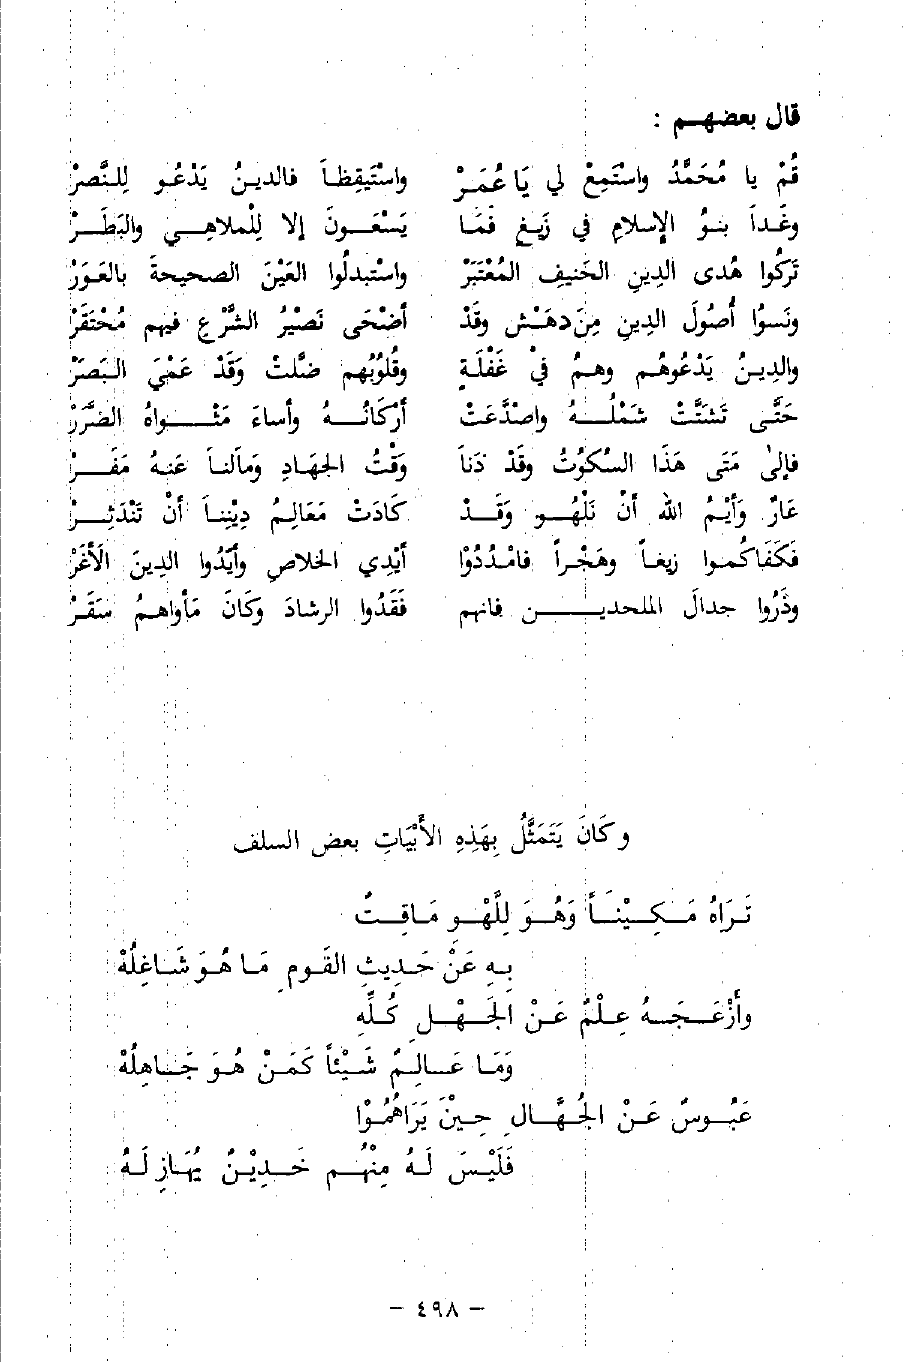 قال بعضهم :
قُمْ يا مُحَمَّدُ واسْتَمِعْ لي يَا عُمَرْ واسْتَيقِظاَ فالدينُ يَدْعُو لِلنَّصرْ
وغَداَ بنوُ الإسلام في زَيغ فَمَا يَسْعَونَ إلا لِلْملاهي والبَطَرْ
تَركُوا هُدى الدينِ الحَنيفِ المُعْتَبَرْ واسْتبدلُوا العَيْنَ الصحيحةَ بالعَوَرْ
ونَسوُا أصُولَ الدينِ مِن دهَش وقَدْ أضْحَى نَصْيرُ الشَّرْعِ فيهم مُحْتَقَرْ
والدينُ يَدْعُوهُم وهمُ في غَفْلَةٍ وقُلُوبُهم ضلَّتْ وَقَدْ عَمْيَ البَصَرْ
حَتَّى تَشتَّتْ شَمْلُهُ واصْدَّعَتْ أرْكَانُهُ وأساءَ مَثْواهُ الضَّرَرْ
فإلىٰ مَتَى هَذا السُّكُوْتُ وقَدْ دَنَاَ وَقْتُ الجهَادِ وَمَالَناَ عَنهُ مَفَرْ
عَارٌ وَأيْمُ الله أنْ نَلْهُو وَقَدْ كَادَتْ مَعَالِمُ دِيْنِناَ أنْ تَنْدَثِرْ
فكَفَاكُموا زيغاً وهَجْراً فامْدُدُوْا أيْدِي الخلاصِ وأيِّدُوا الدينَ الأغَرْ
وذَرُوا جدالَ الملحدين فانهم فَقَدُوا الرشادَ وكَانَ مَأواهمُ سَقَرْ
وكَانَ يَتَمَثَّلُ بِهَذِهِ الأَبْيَاتِ بعض السلف
تَراهُ مَكِيْنَاً وَهُوَ لِلَّهْوِ مَاقِتٌ
بِهِ عَنْ حَدِيثِ القَومِ مَا هُوَ شَاغِلُهْ
وأزْعَجَهُ عِلْمٌ عَنْ الجَهْلِ كُلِّهِ
وَمَا عَالِمٌ شَيْئاً كَمَنْ هُوَ جَاهِلُهْ
عَبُوسٌ عَنْ الجُهَّالِ حِيْنَ يَرَاهُمُوْا
فَلَيْسَ لَهُ مِنْهُم خَدِيْنٌ يُهَازِلَهُ
– ٤٩٨ –